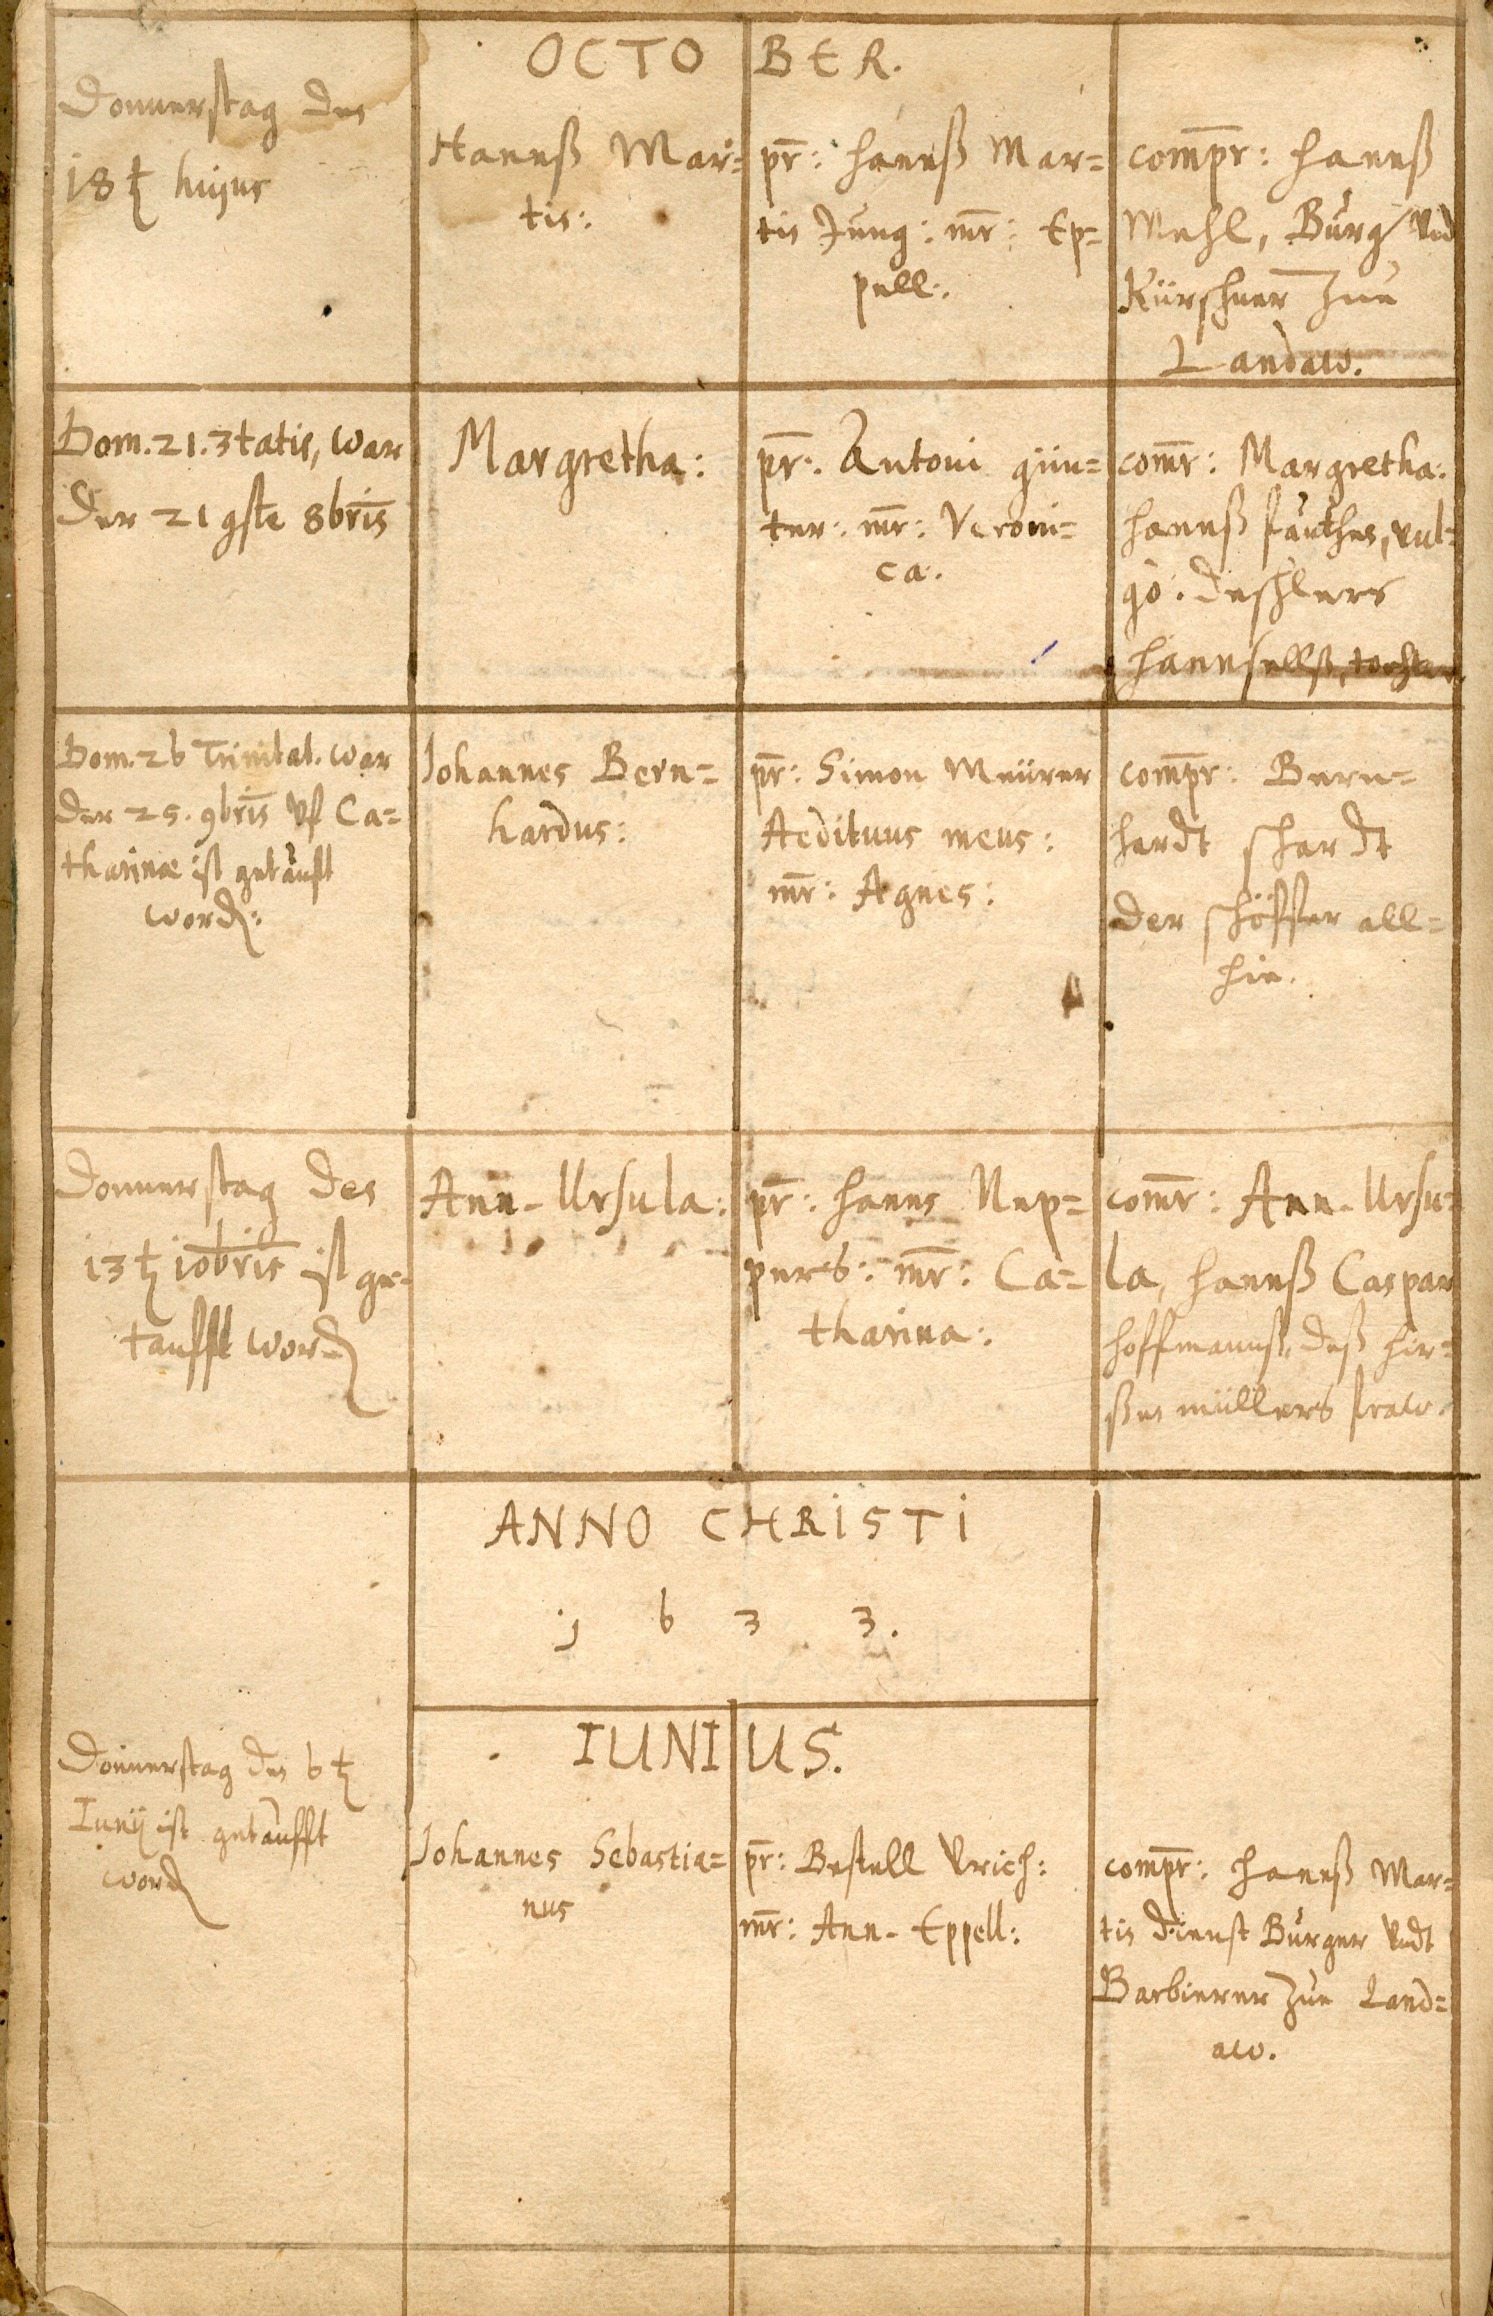 OCTOBER.
Donnerstag des
18t huius
Hannß Mar=
tin:
pr: Hannß Mar=
tin Jung: mr: Ep=
pell:
compr: Hannß
Mehl, Burg/ vnd
Kürschner Zue
Landaw.
Dom. 21. 3tatis, war
der 21gste 8bris
Margretha:
pr: Antoni gün=
ter: mr: Veroni=
ca.
comr: Margretha:
Hannß fauthes, vul=
gò. Deschlers
Hannsellß, tochter.
Dom. 26 Trinitat. war
der 25. 9bris vf Ca=
tharinæ ist getäuft
word:
Johannes Bern=
hardus:
pr: Simon Meürer
Aedituus meus:
mr: Agnes:
compr: Bern=
hardt schardt
der schöffer all=
hie.
Donnerstag des
13t 10bris ist ge=
taufft word
Ann-Ursula:
pr: Hanns Nep=
pers: mr: Ca=
tharina:
comr: Ann-Ursu=
la, Hannß Caspar
Hoffmannß, deß Hir=
ßen müllers fraw.
ANNO CHRISTI
j 6 3 3.
IUNIUS.
Donnerstag den 6t
Iunij ist getäufft
word
Johannes Sebastia=
nus
pr: Bestell Vrich:
mr: Ann-Eppell:
compr: Hannß Mar=
tin dienst Burger vndt
Barbierer Zue Land=
aw.